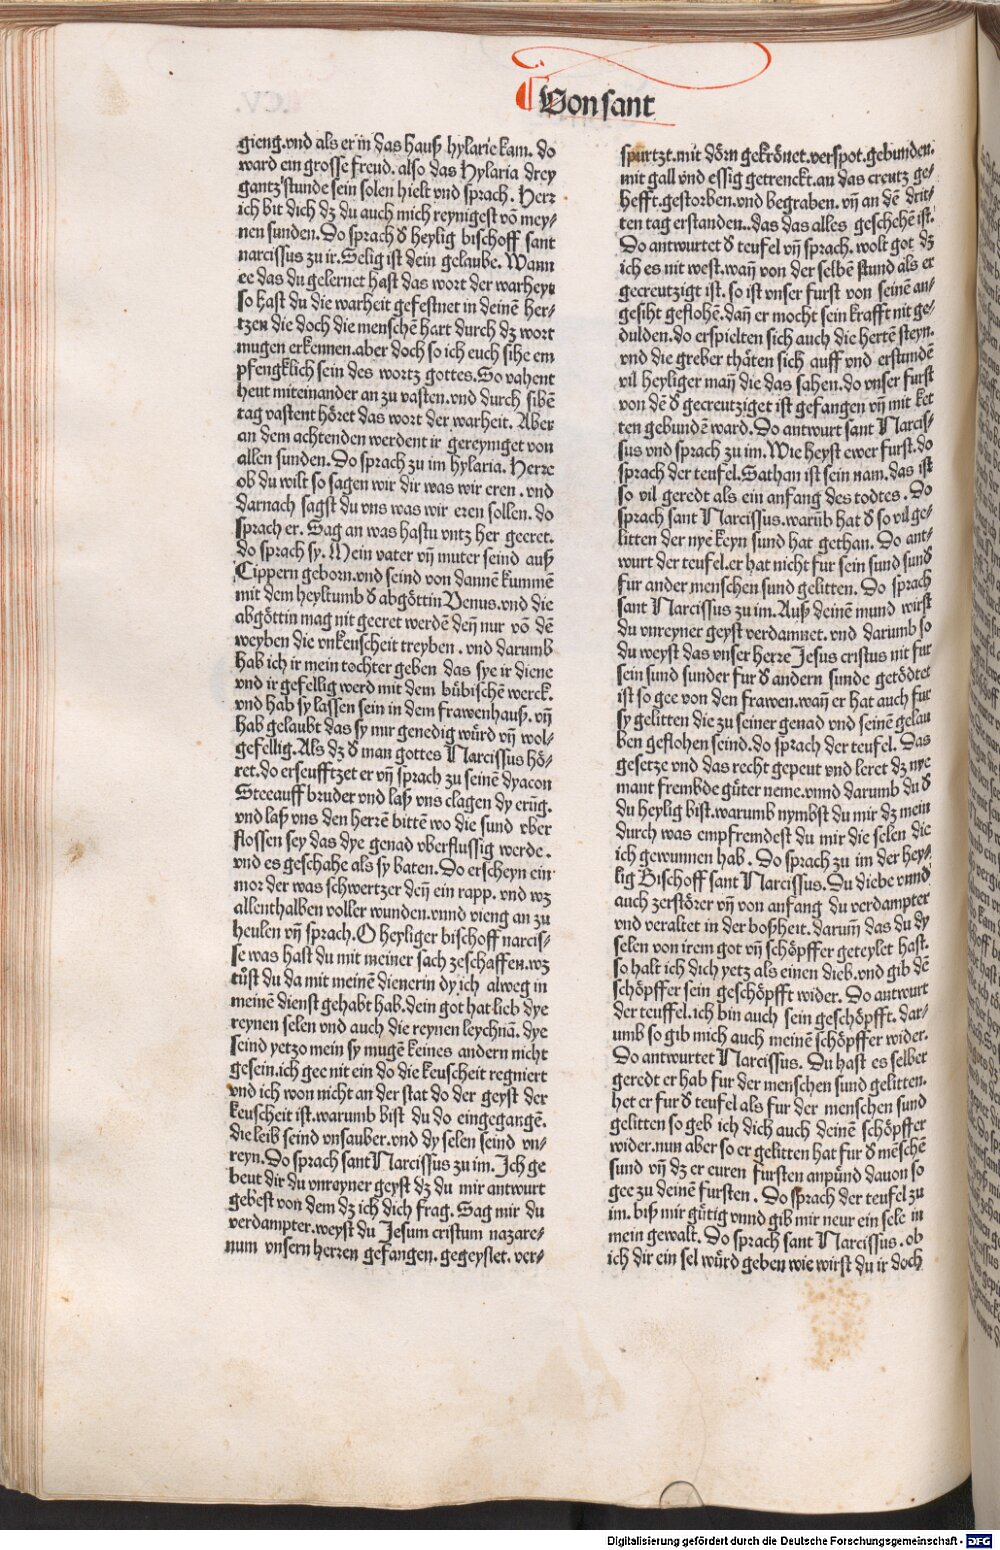 Von sant
gieng.vnd als er in das hauß hylarie kam. do
ward ein grosse freud. also das Hylaria drey
gantz stunde sein solen hielt vnd sprach. Herr
ich bit dich dz du auch mich reynigest võ mey⸗
nen sunden. Do sprach d̕ heylig bischoff sant
narcissus zu ir. Selig ist dein gelaube. Wann
ee das du gelernet hast das wort der warheyt
so hast du die warheit gefestnet in deinē her⸗
tzen die doch die menschē hart durch dz wort
mugen erkennen.aber doch so ich euch sihe em
pfengklich sein des wortz gottes. So vahent
heut miteinander an zu vasten.vnd durch sibē
tag vastent höret das wort der warheit. Aber
an dem achtenden werdent ir gereyniget von
allen sunden. Do sprach zu im hylaria. Herre
ob du wilt so sagen wir dir was wir eren . vnd
darnach sagst du vns was wir eren sollen. do
sprach er. Sag an was hastu vntz her geeret.
do sprach sy. Mein vater vñ muter seind auß
Cippern geborn.vnd seind von dannē kummē
mit dem heyltumb d̕ abgöttin Venus.vnd die
abgöttin mag nit geeret werdē deñ nur võ dē
weyben die vnkeuscheit treyben . vnd darumb
hab ich ir mein tochter geben das sye ir diene
vnd ir gefellig werd mit dem bůbischē werck.
vnd hab sy lassen sein in dem frawenhauß. vñ
hab gelaubt das sy mir genedig würd vñ wol⸗
gefellig. Als dz d̕ man gottes Narcissus hö⸗
ret.do erseufftzet er vñ sprach zu seinē dyacon
Steeauff bruder vnd laß vns clagen dy erüg.
vnd laß vns den herrē bittē wo die sund vber
flossen sey das dye genad vberflussig werde.
vnd es geschahe als sy baten. Do erscheyn ein
mor der was schwertzer deñ ein rapp. vnd wz
allenthalben voller wunden.vnnd vieng an zu
heulen vñ sprach. O heyliger bischoff narcis⸗
se was hast du mit meiner sach zeschaffen.wz
tůst du da mit meinē dienerin dy ich alweg in
meinē dienst gehabt hab.dein got hat lieb dye
reynen selen vnd auch die reynen leychnā. dye
seind yetzo mein sy mugē keines andern nicht
gesein.ich gee nit ein do die keuscheit regniert
vnd ich won nicht an der stat do der geyst der
keuscheit ist.warumb bist du do eingegangē.
die leib seind vnsauber.vnd dy selen seind vn⸗
reyn. Do sprach sant Narcissus zu im. Ich ge
beut dir du vnreyner geyst dz du mir antwurt
gebest von dem dz ich dich frag. Sag mir du
verdampter.weyst du Jesum cristum nazare⸗
num vnsern herren gefangen. gegeyslet. ver⸗
spurtzt.mit dörn gekrönet.verspot.gebunden.
mit gall vnd essig getrenckt.an das creutz ge⸗
hefft.gestorben.vnd begraben. vñ an dē drit⸗
ten tag erstanden..das das alles geschehē ist.
Do antwurtet d̕ teufel vñ sprach. wolt got dz
ich es nit west.wañ von der selbē stund als er
gecreutzigt ist. so ist vnser furst von seinē an⸗
gesiht geflohē.dañ er mocht sein krafft nit ge⸗
dulden.do erspielten sich auch die hertē steyn.
vnd die greber thäten sich auff vnd erstundē
vil heyliger mañ die das sahen.do vnser furst
von dē d̕ gecreutziget ist gefangen vñ mit ket
ten gebundē ward. Do antwurt sant Narcis⸗
sus vnd sprach zu im. Wie heyst ewer furst.do
sprach der teufel. Sathan ist sein nam.das ist
so vil geredt als ein anfang des todtes . Do
sprach sant Narcissus.warũb hat d̕ so vil ge⸗
litten der nye keyn sund hat gethan. Do ant⸗
wurt der teufel.er hat nicht fur sein sund sund̕
fur ander menschen sund gelitten. Do sprach
sant Narcissus zu im. Auß deinē mund wirst
du vnreyner geyst verdamnet. vnd darumb so
du weyst das vnser herre Jesus cristus nit fur
sein sund sunder fur d̕ andern sunde getödtet
ist so gee von den frawen.wañ er hat auch fur
sy gelitten die zu seiner genad vnd seinē gelau
ben geflohen seind.do sprach der teufel. Das
gesetze vnd das recht gepeut vnd leret dz nye
mant frembde güter neme.vnnd darumb du d̕
du heylig bist.warumb nymbst du mir dz mein
durch was empfremdest du mir die selen die
ich gewunnen hab . Do sprach zu im der hey⸗
lig Bischoff sant Narcissus. Du diebe vnnd
auch zerstörer vñ von anfang du verdampter
vnd veraltet in der boßheit. darum̄ das du dy
selen von irem got vñ schöpffer geteylet hast.
so halt ich dich yetz als einen dieb.vnd gib dē
schöpffer sein geschöpfft wider. Do antwurt
der teuffel.ich bin auch sein geschöpfft. dar⸗
umb so gib mich auch meinē schöpffer wider.
Do antwurtet Narcissus. Du hast es selber
geredt er hab fur der menschen sund gelitten.
het er fur d̕ teufel als fur der menschen sund
gelitten so geb ich dich auch deinē schöpffer
wider.nun aber so er gelitten hat fur d̕ mēschē
sund vñ dz er euren fursten anpünd dauon so
gee zu deinē fursten . Do sprach der teufel zu
im. biß mir gütig vnnd gib mir neur ein sele in
mein gewalt. Do sprach sant Narcissus . ob
ich dir ein sel würd geben wie wirst du ir doch
Digitalisierung gefördert durch die Deutsche Forschungsgemeinschaft - DFG